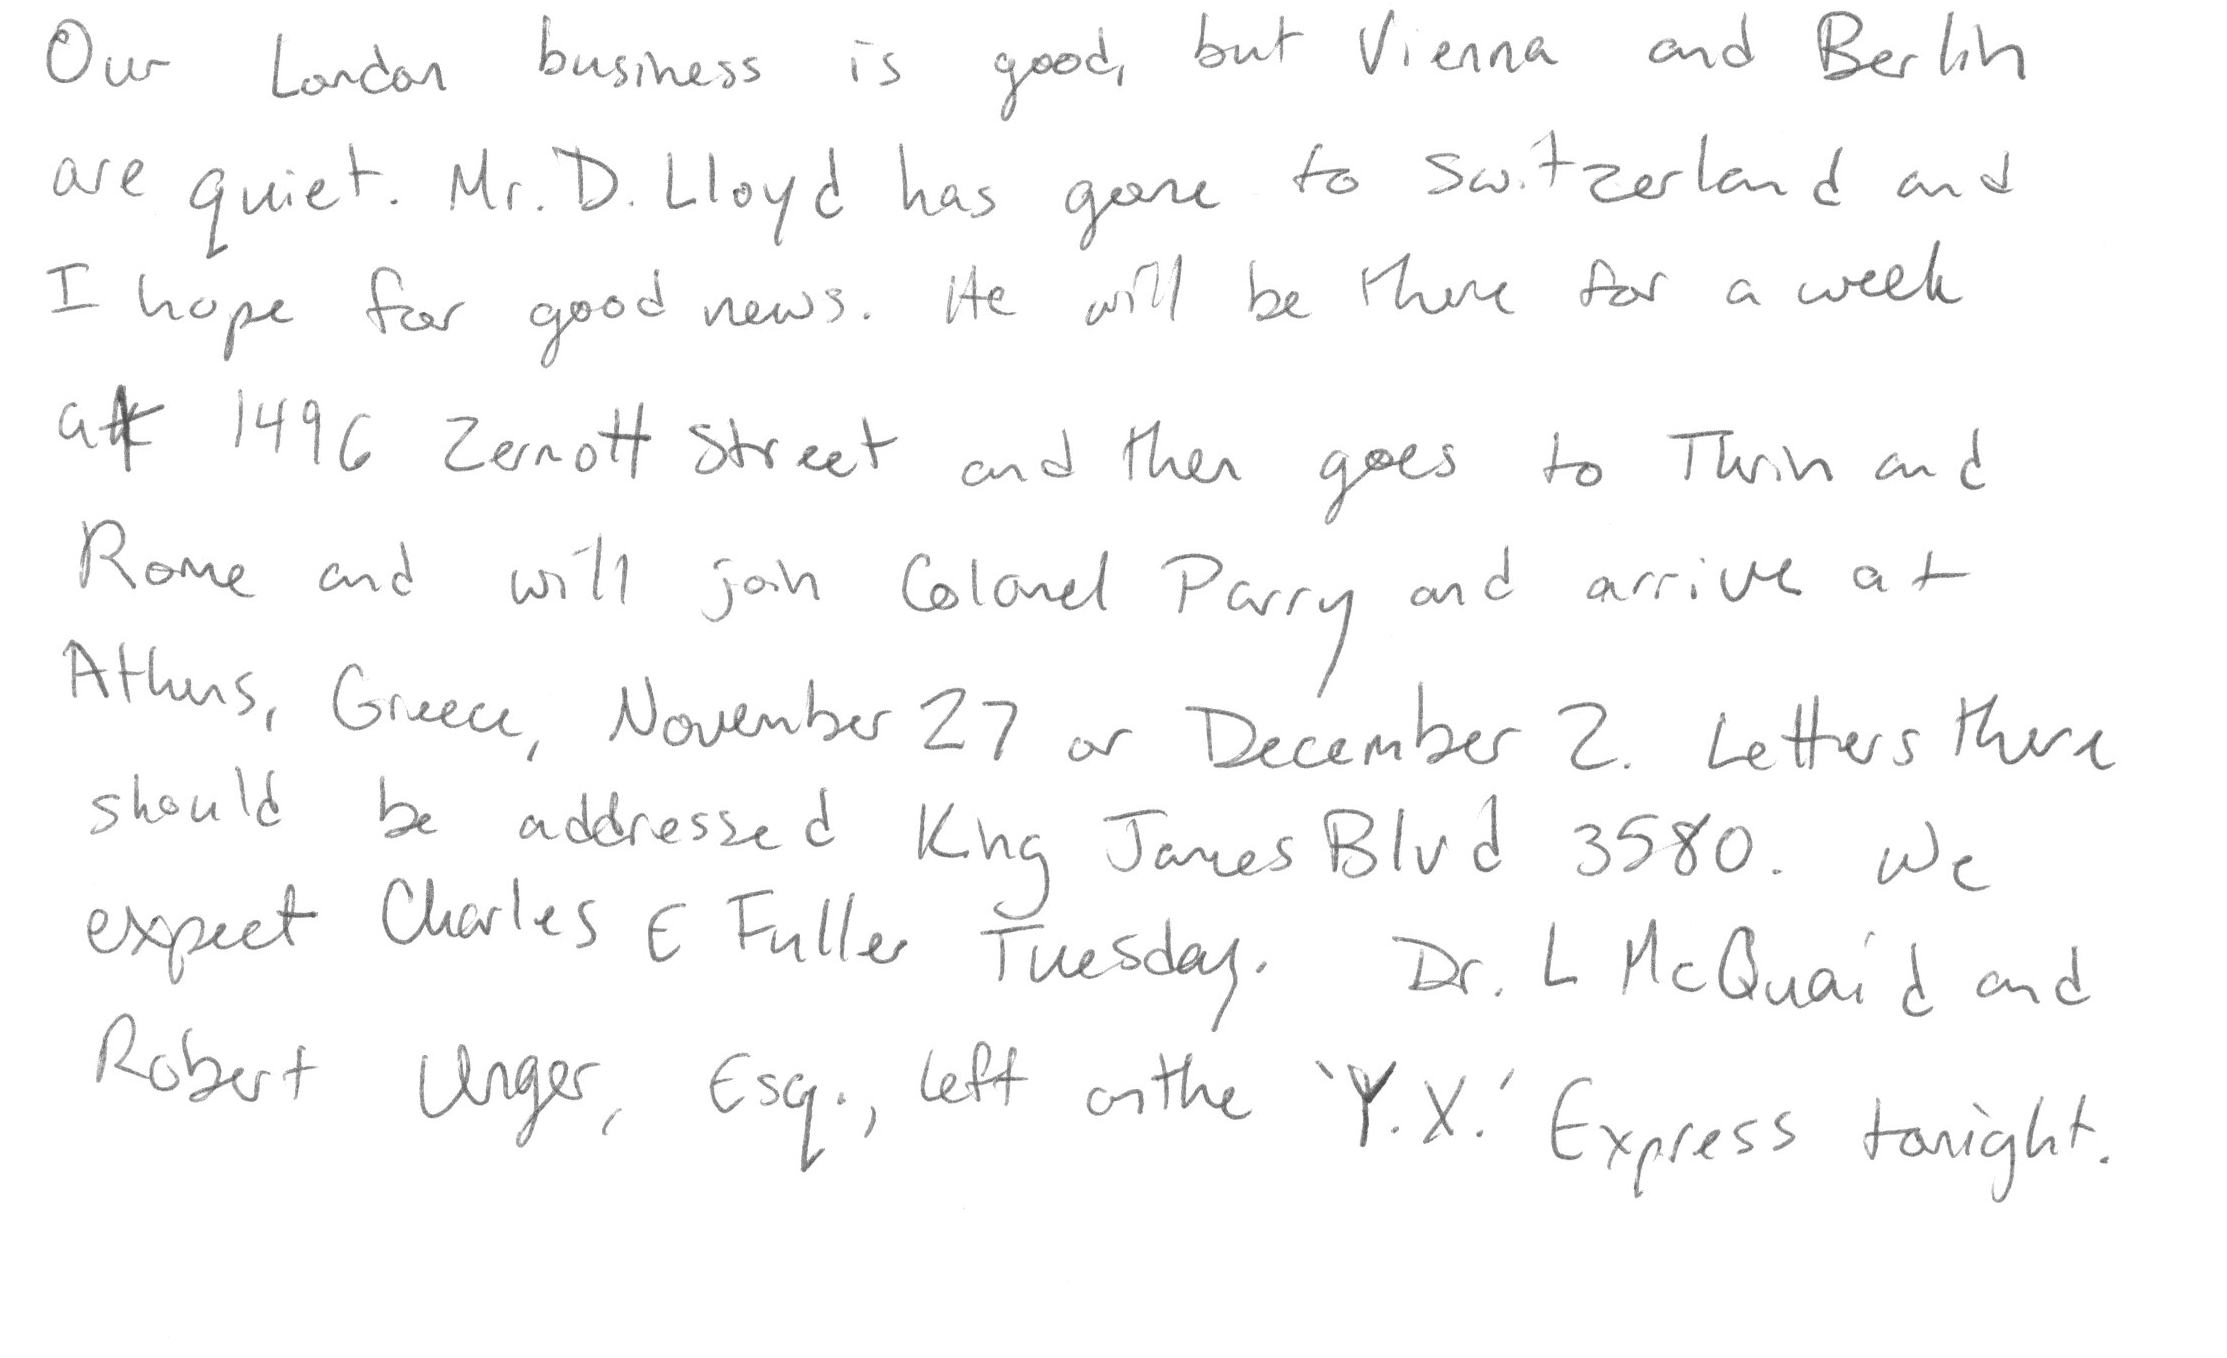 Our London business is good, but Vienna and Berlin
are quiet. Mr. D. Lloyd has gone to Switzerland and
I hope for good news. He will be there for a week
at 1496 Zernott Street and then goes to Turin and
Rome and will join Colonel Parry and arrive at
Athens, Greece, November 27 or December 2. Letters there
should be addressed King James Blvd 3580. We
expect Charles E Fuller Tuesday. Dr. L McQuaid and
Robert Unger, Esq., left on the 'Y.X.' Express tonight.